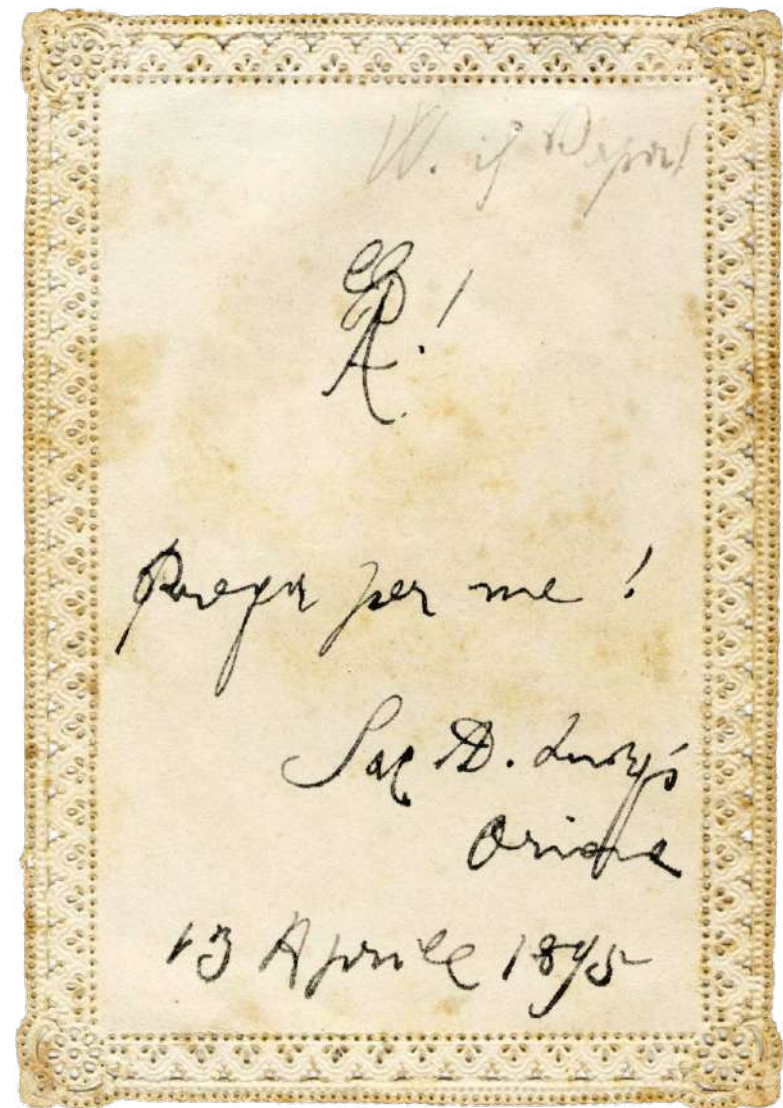 W. il Papa!
Prega per me!
Sac D. Luigi
Orione
13 Aprile 1895